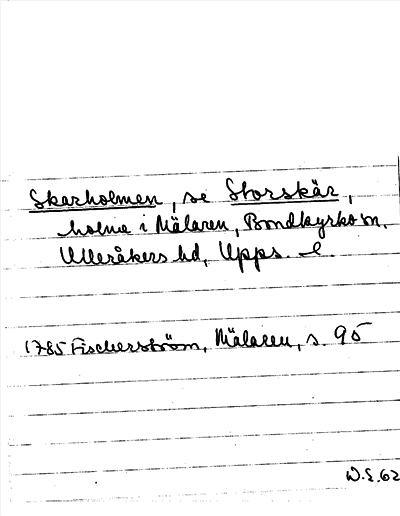 Skarholmen, se Storskär,
holme i Mälaren, Bondkyrko sn,
Ulleråkers hd, Upps. l.
1785 Fischerström, Mälaren, s. 95
W.S. 62